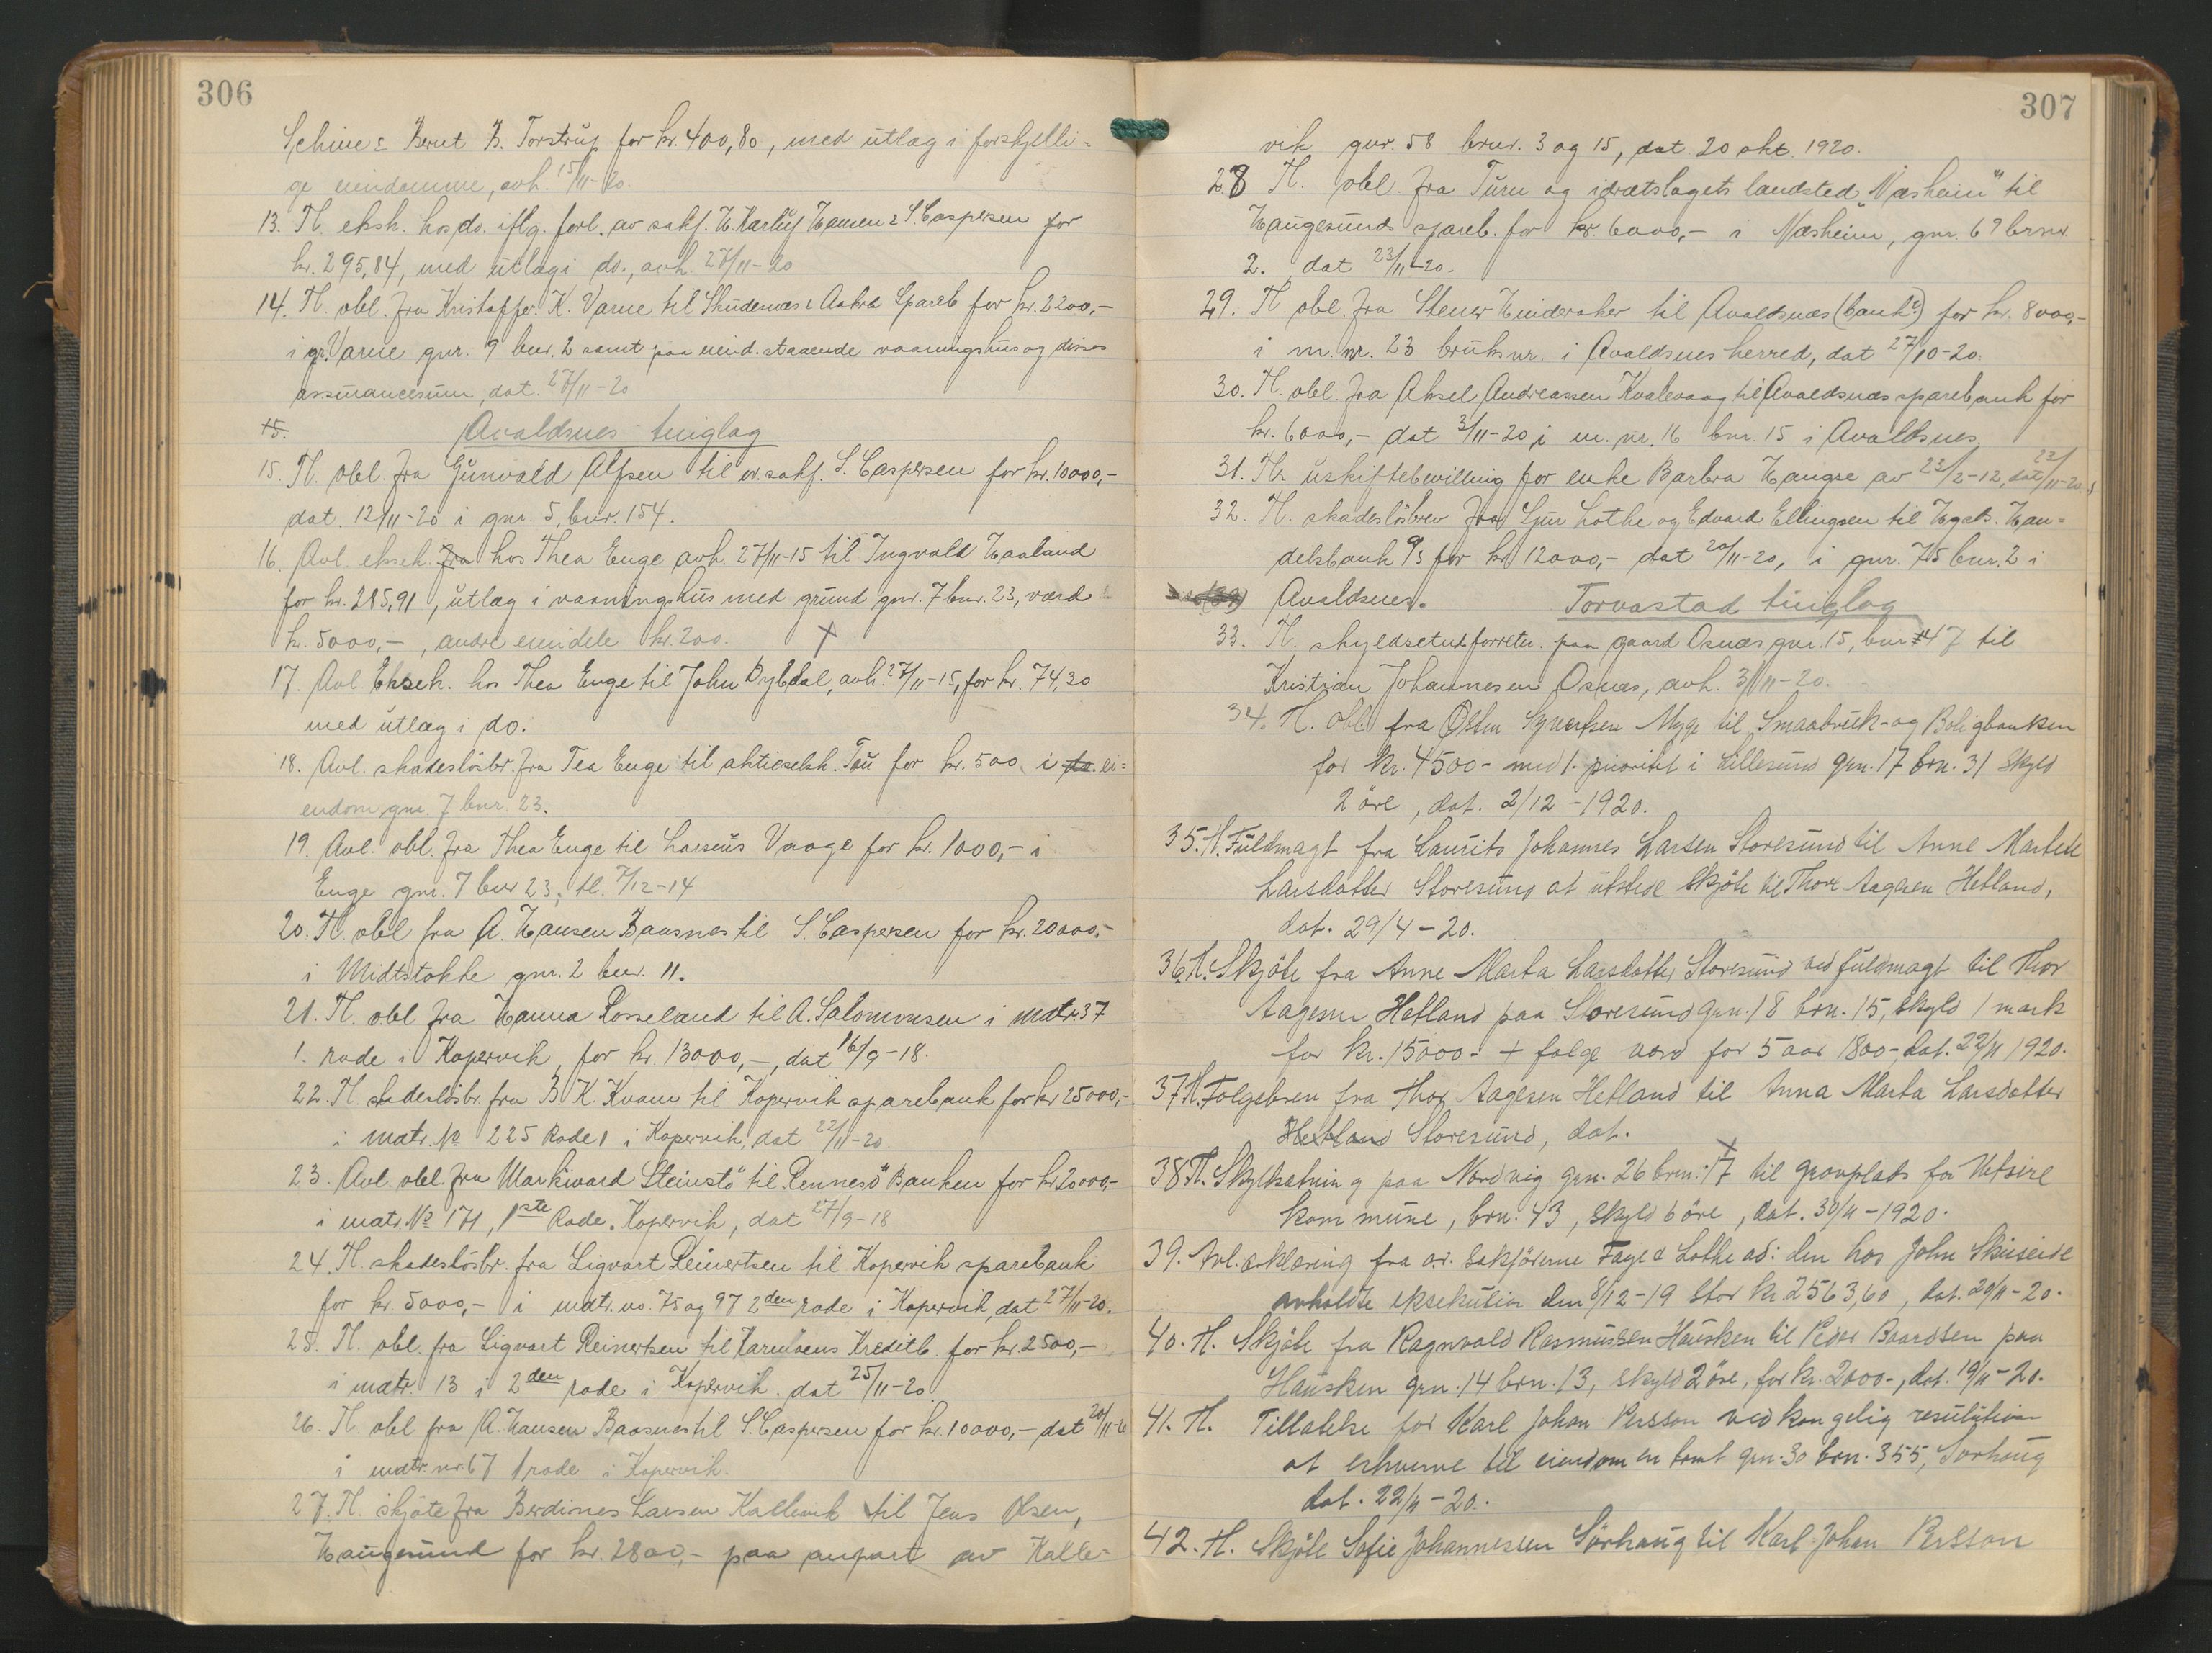 306
Schiue & Berut B. Torstrup for kr. 400,80, med utlæg i forskjelli-
ge eiendomme, avh. 15/11-20.
13. Tl. eksk. hos do. iflg. forl. av sakf. H. Karluf Hansen & S. Caspersen for
kr. 295,84, med utlæg i do., avh. 27/11-20
14. Tl. obl. fra Kristoffer K. Varne til Skudenæs & Aakra Spareb for kr. 2200,-
i gr. Varne gnr. 9 bnr. 2 samt paa eiend. staaende vaaningshus og disses
assurancesum, dat. 27/11-20
15. Avaldsnes tinglag
15. Tl. obl. fra Gunvald Alfsen til o.r.sakf. S. Caspersen for kr. 10000,-
dat. 12/11-20 i gnr. 5, bnr. 154.
16. Avl. eksek. fra hos Thea Enge avh. 27/11-15 til Ingvald Haaland
for kr. 285,91, utlæg i vaaningshus med grund gnr. 7 bnr. 23, værd
kr. 5000,-, andre eiendele kr. 200.
17. Avl. Eksek. hos Thea Enge til John Dybdal, avh. 27/11-15, for kr. 74,30
med utlæg i do.
18. Avl. skadeslösbr. fra Tea Enge til aktieselsk. Tau for kr. 500 i ei-
endom gnr. 7 bnr. 23.
19. Avl. obl. fra Thea Enge til Larseus Vaage for kr. 1000,- i
Enge gnr. 7 bnr 23, tl. 7/12-14
20. Tl. obl fra A. Hansen Baasnes til S. Caspersen for kr. 20000,-
i Midtstokke gnr. 2 bnr. 11.
21. Tl. obl fra Hanna Rosseland til A. Salomonsen i matr. 37
1. rode i Kopervik, for kr. 13000,-, dat 16/9-18.
22. Tl. skadeslösbr. fra B. K. Kvam til Kopervik sparebank for kr 25000,-
i matr. No 225 Rode 1 i Kopervik, dat 22/11-20
23. Avl. obl. fra Markivard Steinstö til "Rennesö" Banken for kr 20000,-
i matr. No 171, 1ste Rode, Kopervik, dat 27/9-18
24. Tl. skadeslösbr. fra Sigvart Reinertsen til Kopervik sparebank
for kr. 5000,- i matr. no. 75 og 97 2den rode i Kopervik, dat 27/11-20.
25. Tl. obl. fra Sigvart Reinertsen til Karmöens Kreditb. for kr. 2500,-
i matr. 13 i 2den rode i Kopervik. dat 25/11-20
26. Tl. obl fra A. Hansen Baasnes til S. Caspersen for kr. 10000,- dat 20/11-20
i matr. nr 67 1 rode i Kopervik.
27. Tl. skjöte fra Berdines Larsen Kallevik til Jens Olsen,
Haugesund for kr. 2800,- paa anpart av Kalle-
307
vik gnr. 58 brnr. 3 og 15, dat. 20 okt. 1920.
28 Tl. obl. fra Turn og idrætslagets landsted "Næsheim" til
Haugesunds spareb. for kr. 6000,- i Næsheim, gnr. 69 brnr
2. dat 23/11-20.
29. Tl. obl. fra Stener Hinderaker til Avaldsnæs (bank:) for kr. 8000,-
i m. nr. 23 bruksnr. i Avaldsnes herred, dat 27/10-20.
30. Tl. obl. fra Aksel Andreassen Kvalevaag til Avaldsnæs sparebank for
kr. 6000,- dat 3/11-20 i m. nr. 16 bnr. 15 i Avaldsnes.
31. Tl. uskiftebevilling for enke Barbra Haugse av 23/2-12, dat 23/11-20.
32. Tl. skadeslösbrev fra Sjur Lothe og Edvard Ellingsen til Hgsds. Han-
delsbank A/S for kr. 12000,- dat 20/11-20, i gnr. 75 bnr. 2 i
Avaldsnes. Torvastad tinglag
33. Tl. skyldsetn.forretn. paa gaard Osnæs gnr. 15, bnr 47 til
Kristian Johannesen Osnæs, avh. 3/11-20.
34. Tl. obl fra Osten Syvertsen Myge til Smaabruk- og Boligbanken
for kr. 4500- med 1. prioritet i Lillesund grn. 17 brn. 31 Skyld
2 öre, dat. 2/12-1920.
35. Tl. Fuldmagt fra Laurits Johannes Larsen Storesund til Anne Martek
Larsdatter Storesund at utstede Skjöte til Thore Aagesen Hetland,
dat. 29/4-20.
36 Tl. Skjöte fra Anne Marta Larsdatter Storesund ved fuldmagt til Thor
Aagesen Hetland paa Storesund grn. 18 brn. 15, skyld 1 mark
for kr. 15000- + følge værd for 5 aar 1800-, dat. 22/11 1920.
37 Tl. Følgebrev fra Thor Aagesen Hetland til Anna Marta Larsdatter
Hetland Storesund, dat.
38 Tl. Skyldsetning paa Nordvig grn. 26 brn. 17 til gravplats for Utsire
kommune, brn. 43, skyld 6 öre, dat. 30/11-1920.
39. Avl. erklæring fra o.r. sakförerne Faye & Lothe ad: den hos John Skuseide
avholdte eksekution den 8/12-19 stor kr 2563,60, dat. 29/11-20.
40. Tl. Skjöte fra Ragnvald Rasmussen Hausken til Peder Baardsen paa
Hausken grn. 14 brn. 13, skyld 2 öre, for kr. 2000-, dat. 19/11-20.
41. Tl. Tillatelse for Karl Johan Persson ved kongelig resulution
at erhverve til eiendom en tomt grn. 30 brn. 355, Sørhaug
dat. 22/11-20.
42. Tl. Skjöte Sofie Johannessen Sörhaug til Karl Johan Persson